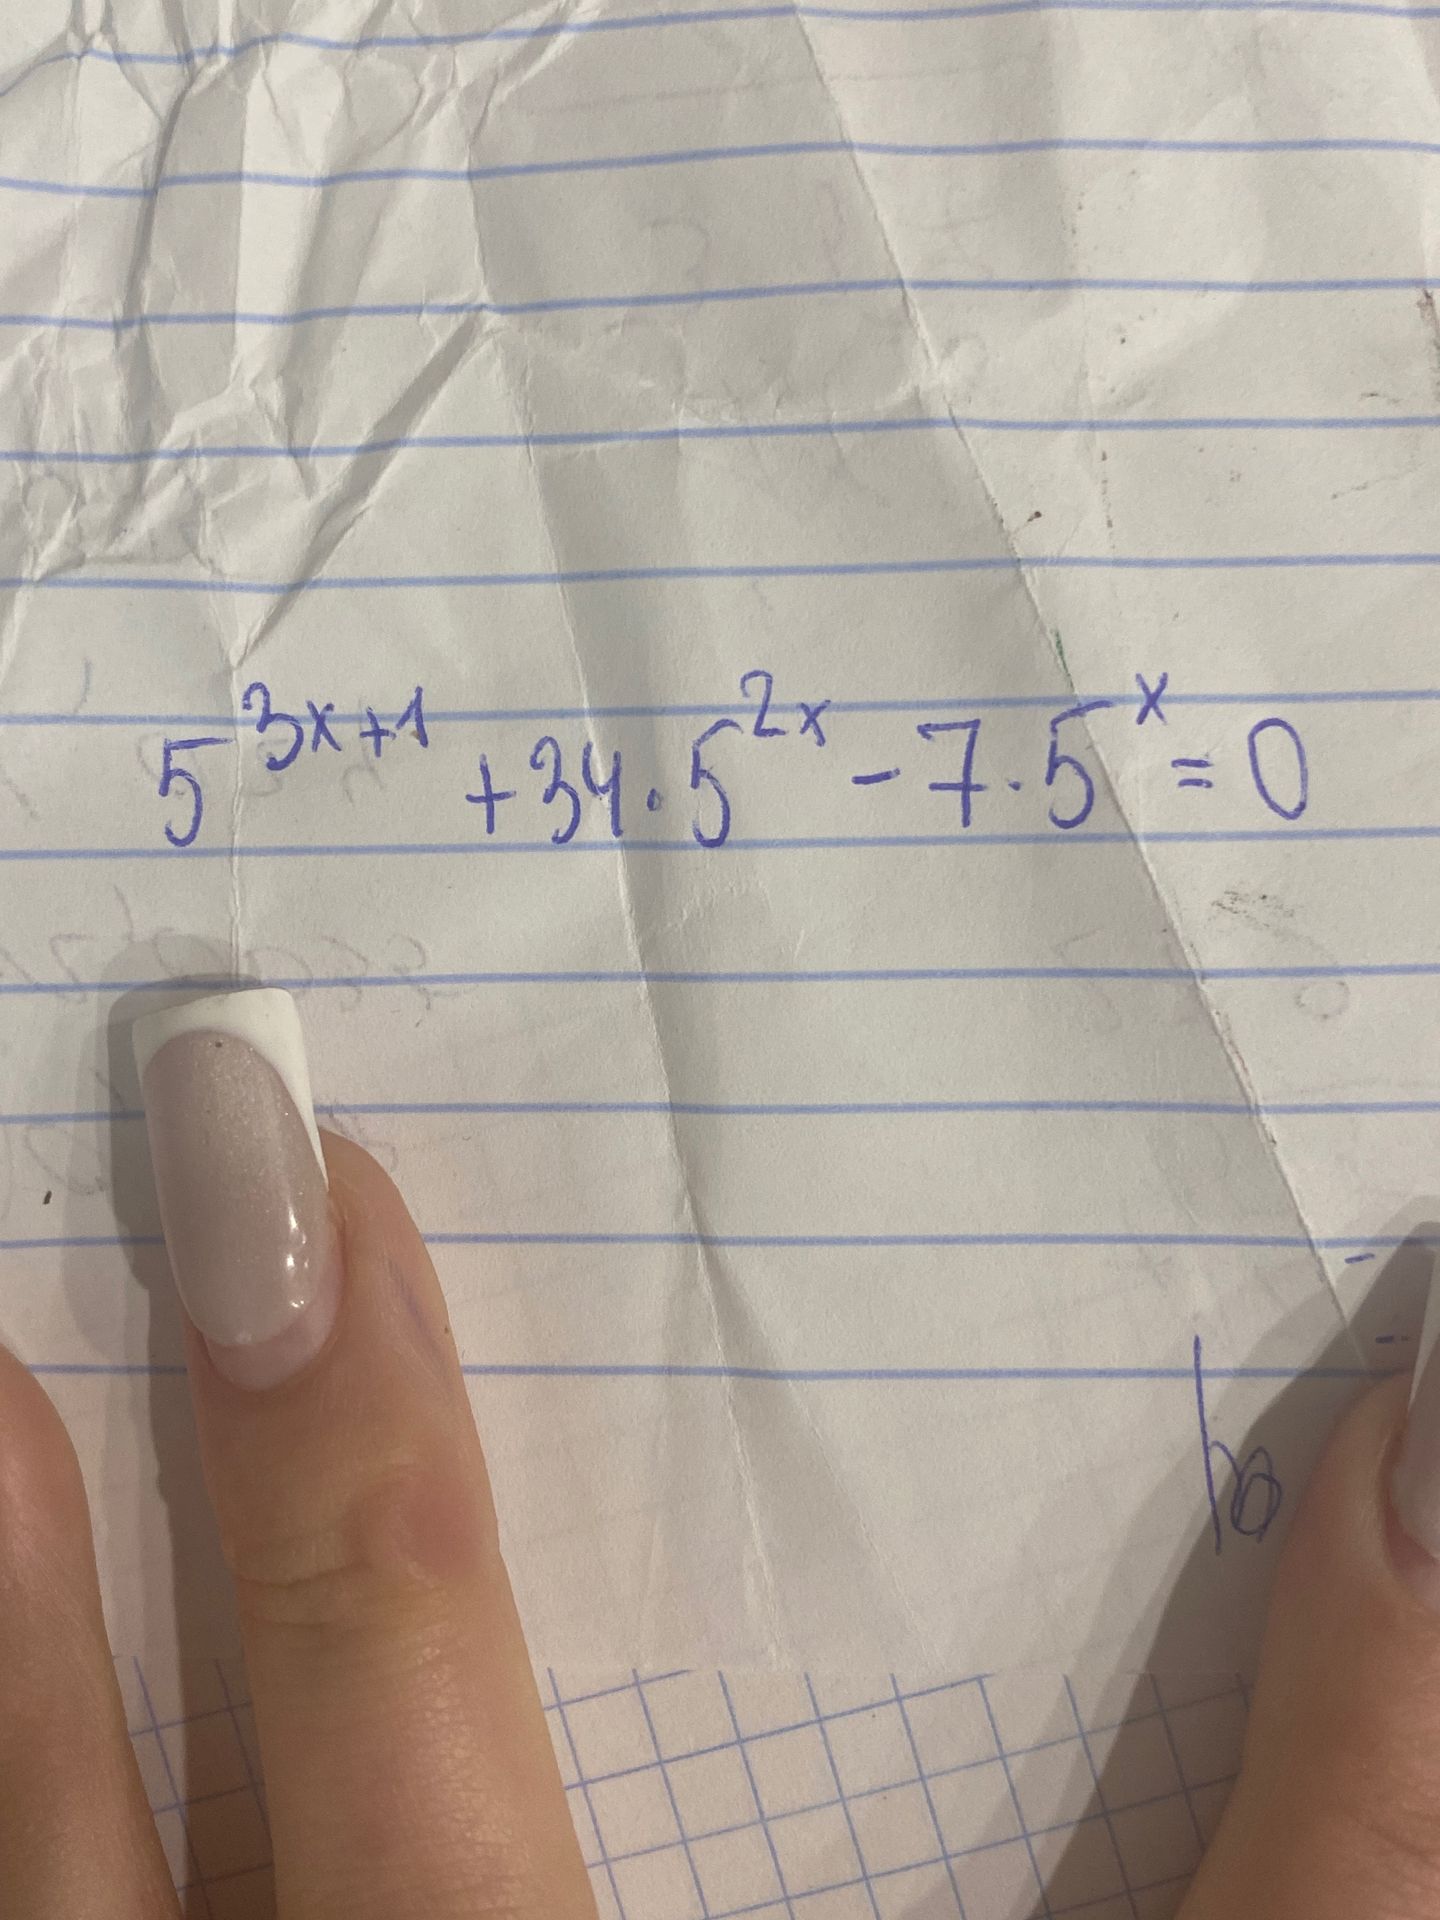 5^{3x+1} + 34 · 5^{2x} - 7 · 5^x = 0